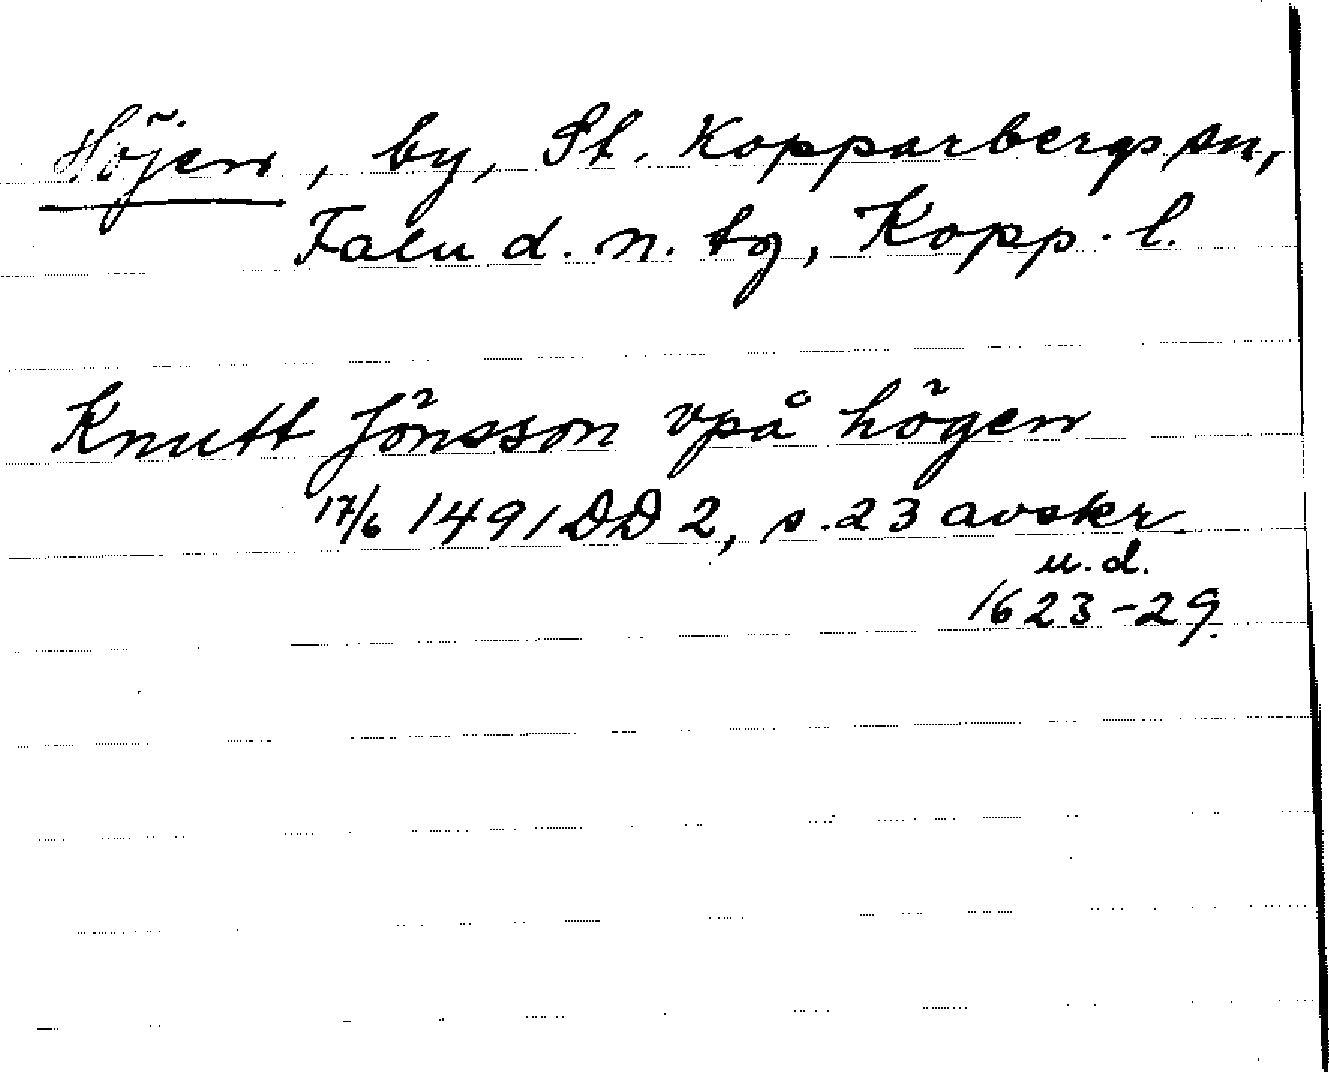 Höjen, by, St. Kopparbergs sn,
Falu d. n. tg, Kopp. l.
Knutt Jönsson vpå högen
17/6 1491 DD 2, s. 23 avskr.
u. d.
1623-29.